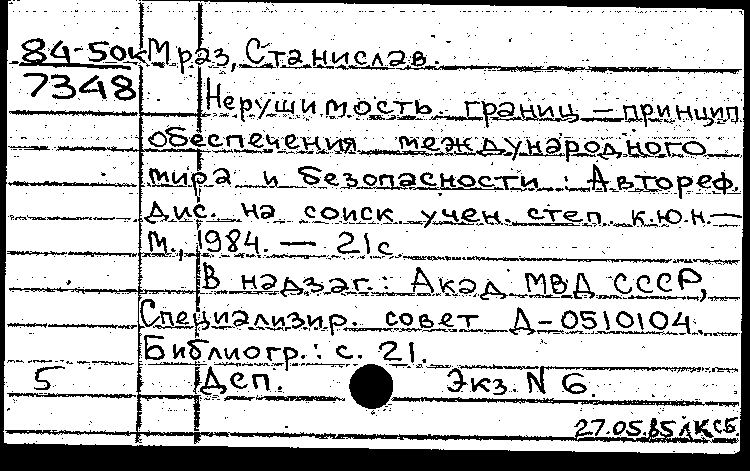 84-50к Мраз, Станислав.
7348
Нерушимость границ — принцип
обеспечения международного
мира и безопасности : Автореф.
дис. на соиск учен. степ. к.ю.н.—
М., 1984. — 21с
В надзаг.: Акад МВД СССР,
Специализир. совет Д-0510104.
Библиогр.: с. 21.
5 Дсп. Экз. N 6.
27.05.85